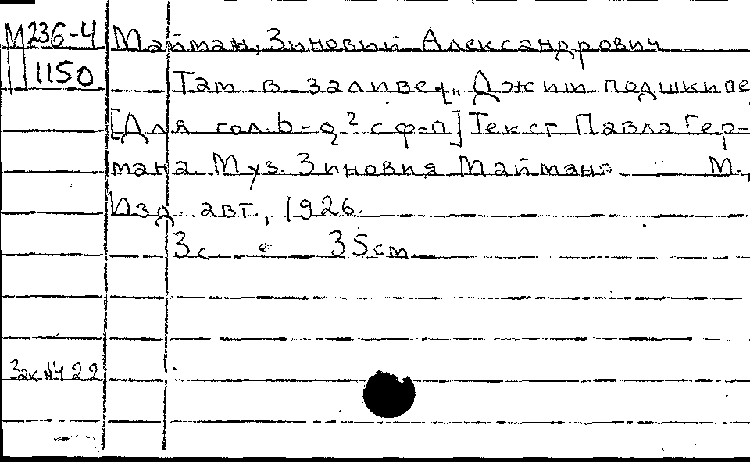 М236-4 Майман, Зиновий Александрович
1150 Там в заливе „Джим подшкипе
[Для гол. b-g² с ф-п] Текст Павла Гер-
мана Муз. Зиновия Маймана М.,
Изд. авт., 1926.
3с. 35 cm
Зак. № 422